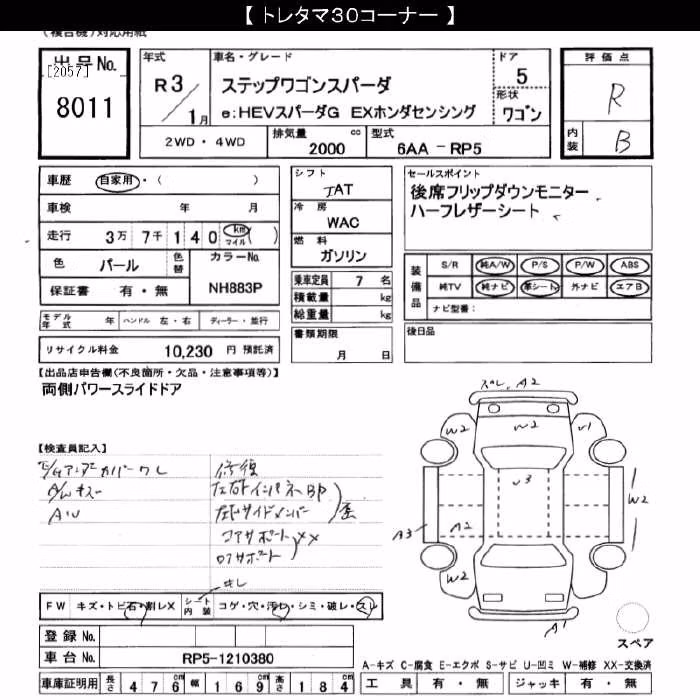 【 トレタマ30コーナー 】
(複合機)対応用紙
出品No.
[2057]
8011
年式
R3/1月
車名・グレード
ステップワゴンスパーダ
e:HEVスパーダG EXホンダセンシング
ドア
5
形状
ワゴン
2WD・4WD
排気量 cc
2000
型式
6AA - RP5
評価点
R
内装
B
車歴 自家用・( )
車検 年 月
走行 3万 7千 1 4 0 km マイル ( )
色 パール 色替 カラーNo.
NH883P
保証書 有・無
シフト
AT
冷房
WAC
燃料
ガソリン
乗車定員 7 名
積載量 kg
総重量 kg
書類期限
月 日
セールスポイント
後席フリップダウンモニター
ハーフレザーシート
装備品
S/R 純A/W P/S P/W ABS
純TV 純ナビ 革シート 外ナビ エアB
ナビ型番:
後日品
モデル年式 年 ハンドル 左・右 ディーラー・並行
リサイクル料金 10,230 円 預託済
【出品店申告欄(不良箇所・欠品・注意事項等)】
両側パワースライドドア
【検査員記入】
A/Wキズ
修復
コアサポート XX
ロアサポート
歪
スペレ A2
W2
W2
U1
U3
W2
A3
A2
W2
A1
スペア
FW キズ・トビ石・割レX シート内装 コゲ・穴・汚レ・シミ・破レ・スレ
登録No.
車台No. RP5-1210380
車庫証明用 長さ 4 7 6 cm 幅 1 6 9 cm 高さ 1 8 4 cm
A-キズ C-腐食 E-エクボ S-サビ U-凹ミ W-補修 XX-交換済
工具 有・無 ジャッキ 有・無